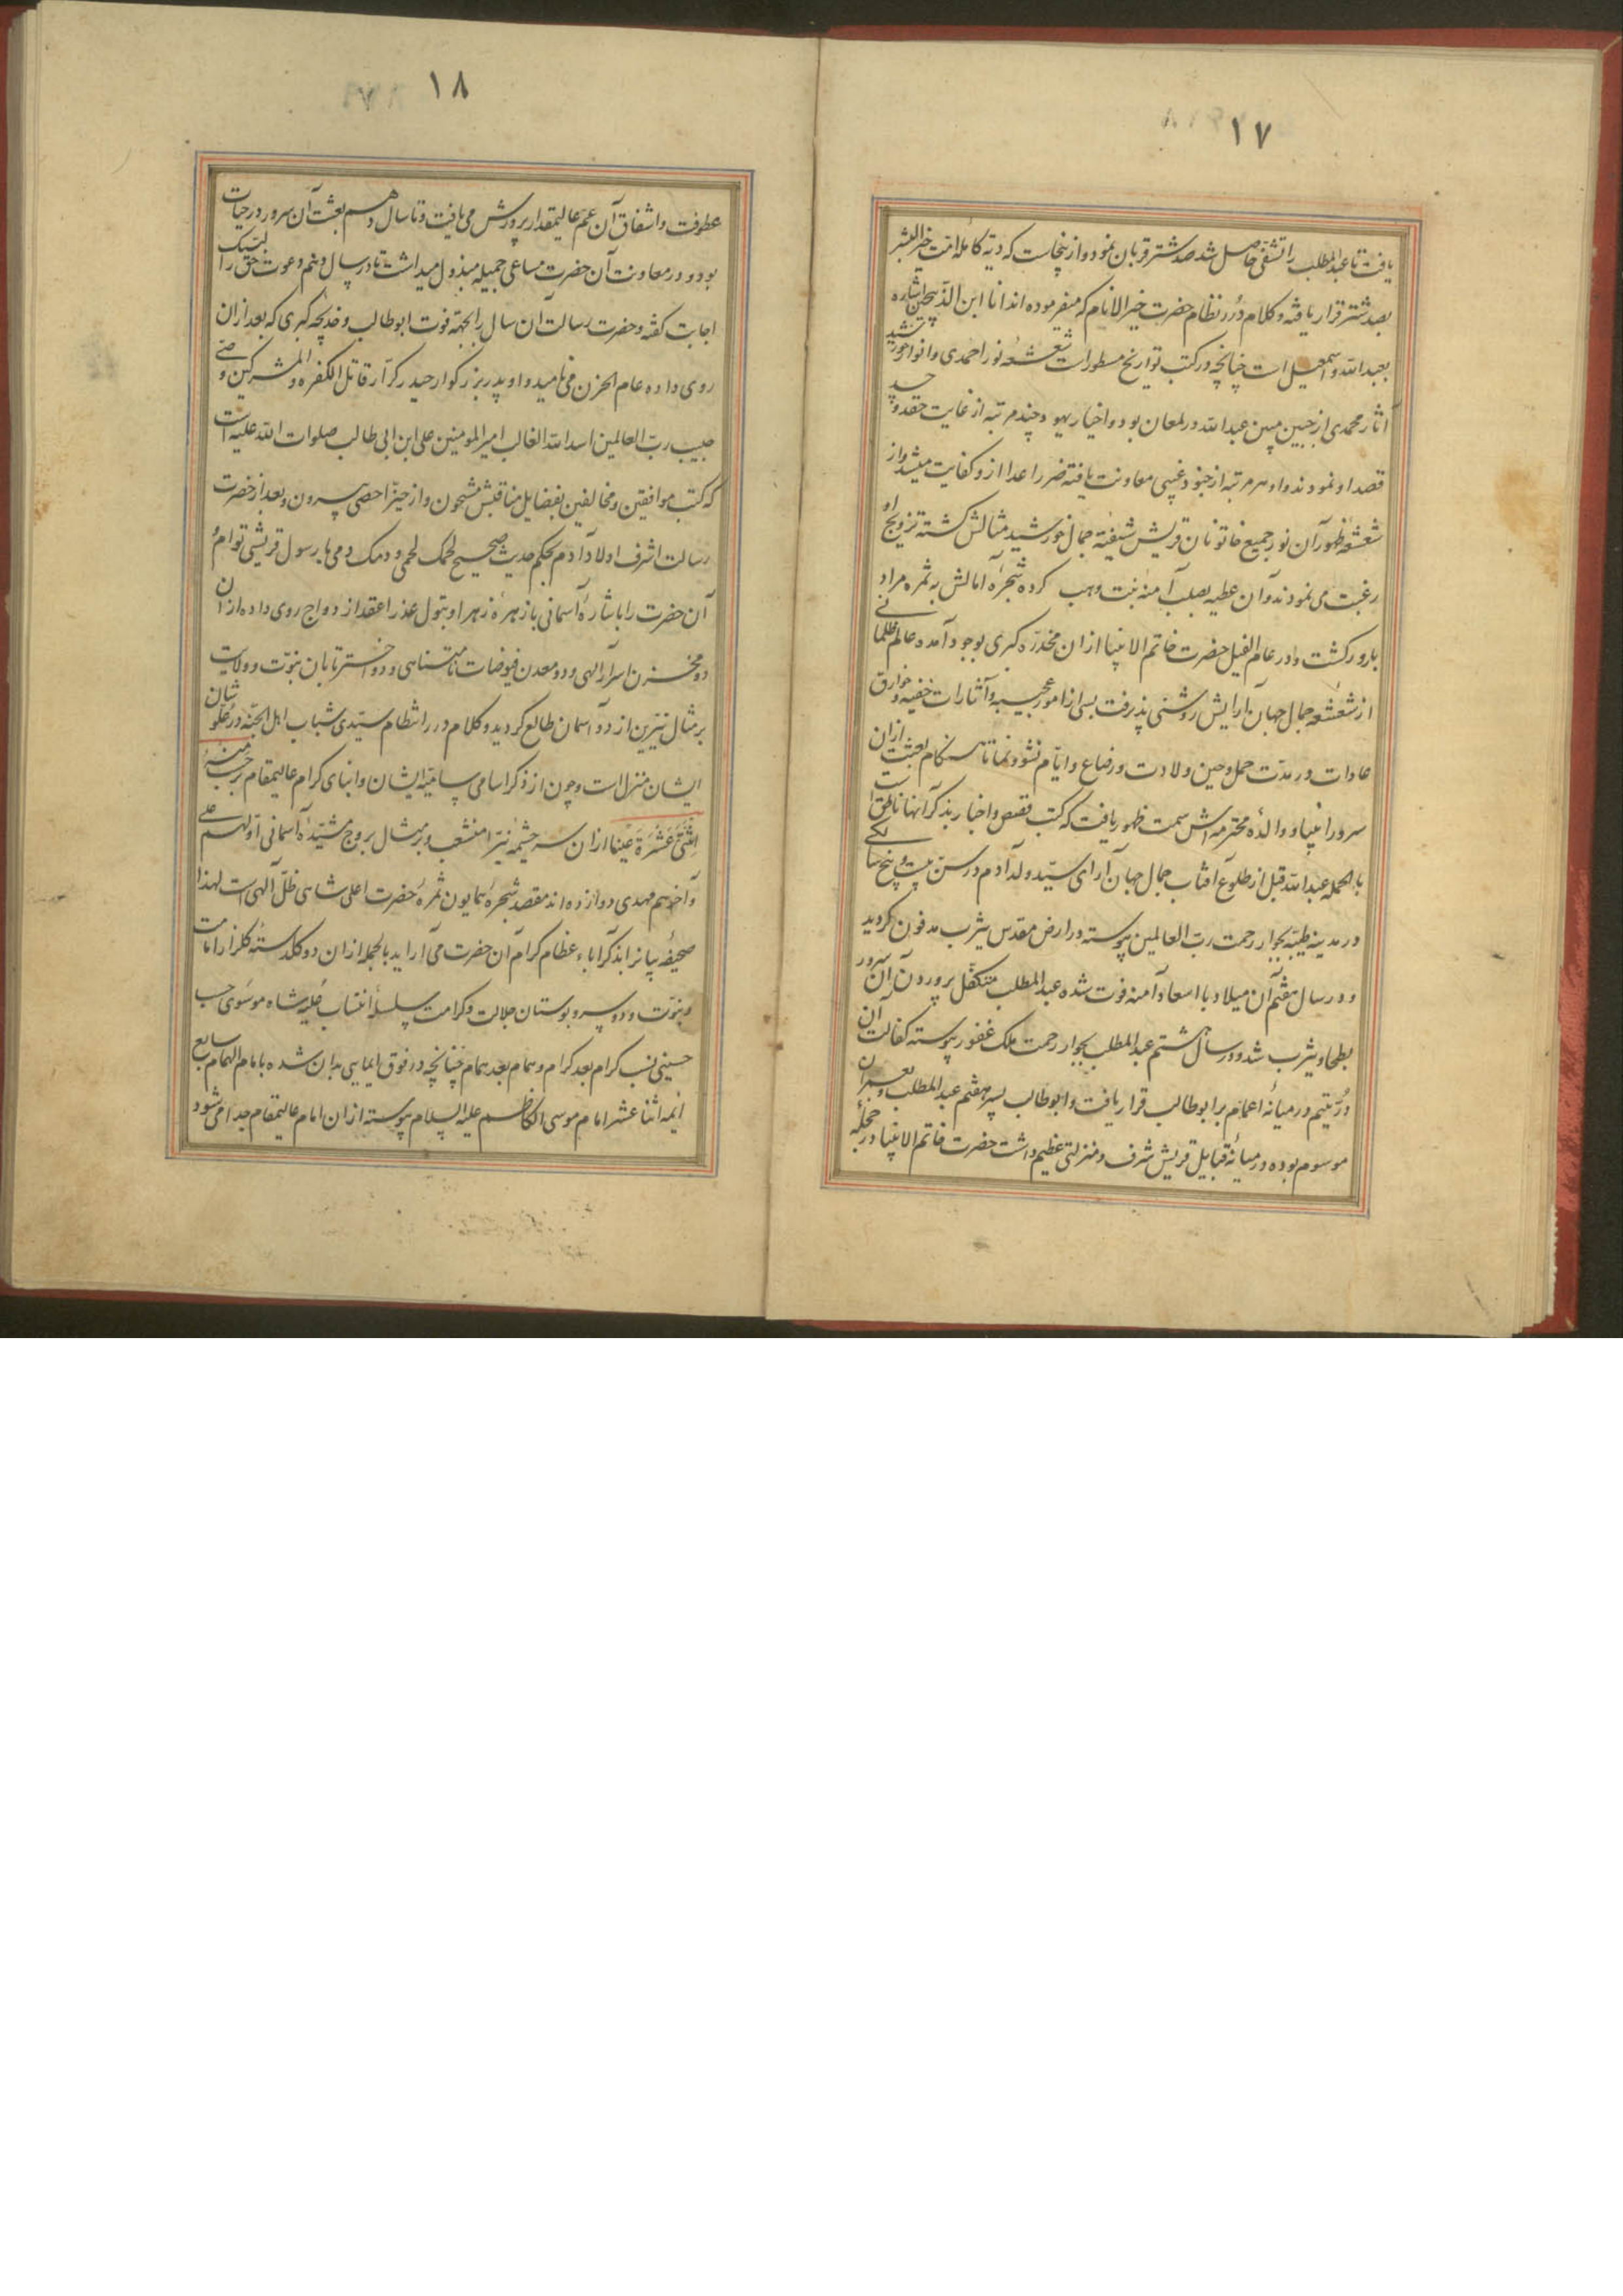 ١٧
یافت تا عبدالمطلب را تشفی حاصل شد صد شتر قربان نمود و از اینجاست که دیۀ کاملۀ امت خیر البشر
بصد شتر قرار یافته و کلام درر نظام حضرت خیر الانام که میفرموده اند انا ابن الذبیحین اشاره
بعبدالله و اسمعیل است چنانچه در کتب تواریخ مسطور است شعشعۀ نور احمدی و انوار خورشید
آثار محمدی از جبین مبین عبدالله در لمعان بود و اخیار یهود چند مرتبه از غایت حقد و حسد
قصد او نمودند و او هر مرتبه از جنود غیبی معاونت یافته ضرر اعدا ازو کفایت میشد و از
شعشعۀ ظهور آن نور جمیع خاتونان قریش شیفتۀ جمال خورشید مثالش کشته تزویج او
رغبت می نمودند و آن عطیه بصلب آمنه بنت وهب کرده شجرۀ آمالش به ثمره مراد
بارور کشت و در عام الفیل حضرت خاتم الانبیا ازان مخدرۀ کبری بوجود آمده عالم ظلمانی
از شعشعۀ جمال جهان آرایش روشنی پذیرفت بسی از امور عجیبه و آثارات خفیه و خوارق
عادات در مدت حمل و حین ولادت و رضاع و ایام نشو و نما تا هنکام بعثت ازان
سرور انبیا و والدۀ محترمه اش سمت ظهور یافت که کتب قصص و اخبار بذکر آنها ناطق است
بالجمله عبدالله قبل از طلوع آفتاب جمال جهان آرای سید ولد آدم در سن بیست و پنج سالکی
در مدینه طیبه بجوار رحمت رب العالمین پیوسته در ارض مقدس یثرب مدفون کردید
و در سال هفتم آن میلاد با اسعاد آمنه فوت شده عبدالمطلب متکفل پروردن آن سرور
بطحا و یثرب شد و در سال هشتم عبدالمطلب بجوار رحمت ملک غفور پیوسته کفالت آن
در یتیم در میانۀ اعمام بر ابوطالب قرار یافت و ابوطالب پسر هفتم عبدالمطلب و بعمران
موسوم بوده در میانۀ قبایل قریش شرف و منزلتی عظیم داشت حضرت خاتم الانبیا در حجلۀ
١٨
عطوفت و اشفاق آن عم عالیمقدار پرورش می یافت و تا سال دهم بعثت آن سرور در حیات
بود و در معاونت آن حضرت مساعی جمیله مبذول میداشت تا در سال دهم دعوت حق را لبیک
اجابت کفته و حضرت رسالت آن سال را بجهة فوت ابوطالب و خدیجه کبری که بعد ازان
روی داده عام الحزن می نامید و او پدر بزرکوار حیدر کرار قاتل الکفره و المشرکین وصی
حبیب رب العالمین اسد الله الغالب امیر المومنین علی ابن ابی طالب صلوات الله علیه است
که کتب موافقین و مخالفین بفضایل مناقبش مشحون و از حیز احصی بیرون و بعد از حضرت
رسالت اشرف اولاد آدم بحکم حدیث صحیح لحمک لحمی و دمک دمی با رسول قریشی توام
آن حضرت را باشارۀ آسمانی با زهرۀ زهرا و بتول عذرا عقد ازدواج روی داده ازان
دو مخزن اسرار الهی و دو معدن فیوضات نامتناهی و دو اختر تابان نبوت و ولایت
بر مثال نیرین از دو آسمان طالع کردید و کلام درر انتظام سیدی شباب اهل الجنه در علو شان
ایشان منزل است و چون از ذکر اسامی سامیۀ ایشان و ابنای کرام عالیمقام
اثنتی عشرة عینا ازان سرچشمه نیرا منشعب و بر مثال بروج مشیدۀ آسمانی اولهم علی
و آخرهم مهدی دوازده اند مقصد شجرۀ همایون ثمرۀ حضرت اعلی شاهی ظل الهی است لهذا
صحیفۀ بیانرا بذکر اباء عظام کرام آن حضرت می آراید بالجمله ازان دو کلدستۀ کلزار امامت
و نبوت و دو سرو بوستان جلالت و کرامت سلسلۀ انتساب علیه شاه موسوی حسب
حسینی نسب کرام بعد کرام و همام بعد همام چنانچه در فوق ایمایی بدان شده بامام الهمام سابع
ائمه اثنا عشر امام موسی الکاظم علیه السلام پیوسته ازان امام عالیمقام جدا می شود